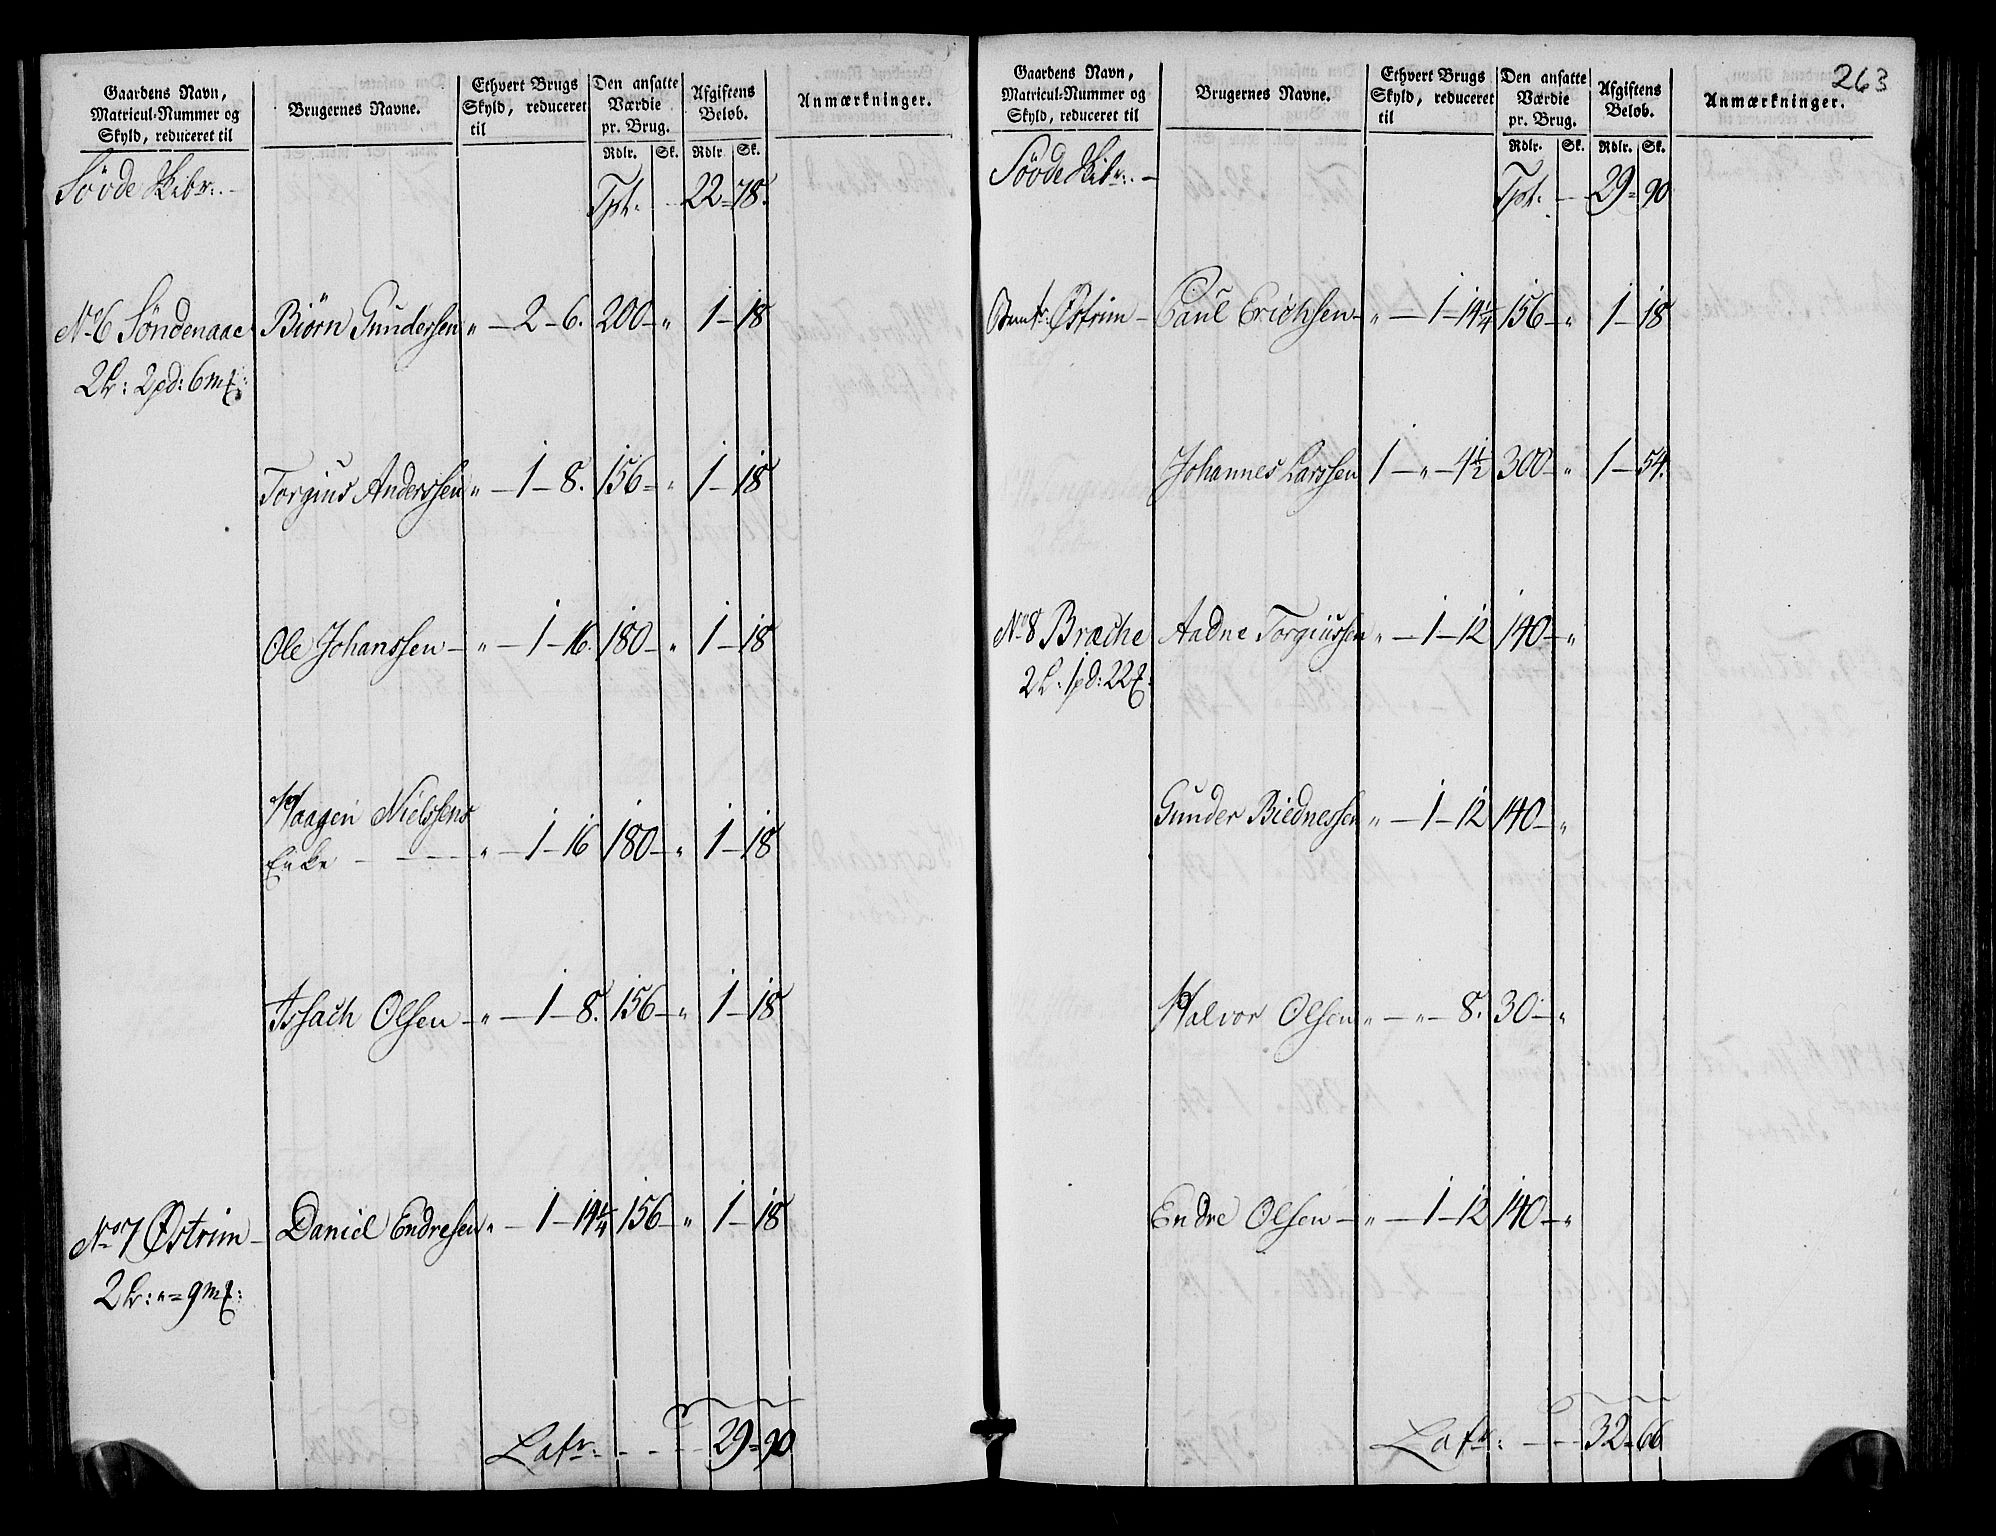 Gaardens Navn, Matricul-Nummer og Skyld, reduceret til
Brugernes Navne.
Ethvert Brugs Skyld, reduceret til
Den ansatte Værdie pr. Brug.
Afgiftens Beløb.
Anmærkninger.
Rdlr. Sk. Rdlr. Sk.
Søvde Skibr:
Tpt. 22 = 78.
No 6 Søndenaae Biørn Gundersen „ — 2 — 6. 200 — „ 1 — 18
2 lr: 2 pd: 6 mf:
Torgius Anderssen „ — 1 — 8. 156 — „ 1 — 18
Ole Johanssen — „ — 1 — 16. 180 — „ 1 — 18
Haagen Nielssens
Enke — „ — 1 — 16 180 — „ 1 — 18
Issach Olsen — „ — 1 — 8. 156 — „ 1 — 18
No 7 Østrim — Daniel Endresen „ — 1 — 14¼ 156 — „ 1 — 18
2 lr: „ = 9 mf:
Latr: 29 = 90
263
Gaardens Navn, Matricul-Nummer og Skyld, reduceret til
Brugernes Navne.
Ethvert Brugs Skyld, reduceret til
Den ansatte Værdie pr. Brug.
Afgiftens Beløb.
Anmærkninger.
Rdlr. Sk. Rdlr. Sk.
Søvde Skibr: —
Tpt. 29 = 90
Østrim — Paul Erichsen — „ — 1 — 14¼ 156 — „ 1 — 18
Johannes Larssen 1 — „ — 4½ 300 — „ 1 — 54.
No 8 Bræche Aadne Torgiussen „ — 1 — 12 140 — „
2 l: 1 pd: 22 f:
Gunder Biednessen „ — 1 — 12 140 — „
Halvor Olsen „ — „ — 8. 30 — „
Endre Olsen — „ — 1 — 12 140 — „
Latr: 32 = 66